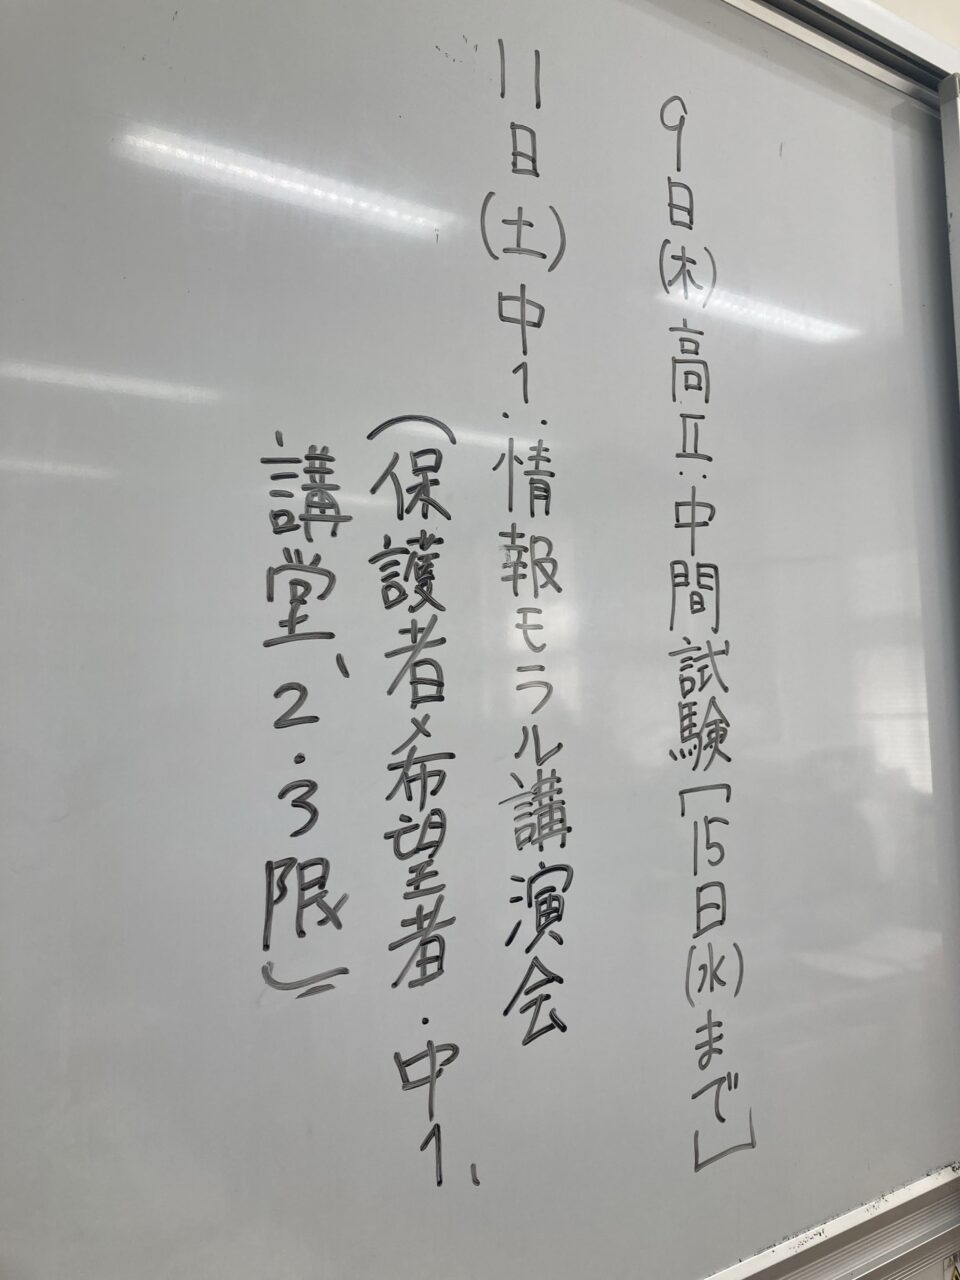 9日(木)高Ⅱ:中間試験「15日(水)まで」
11日(土)中1:情報モラル講演会
(保護者希望者・中1、
講堂、2・3限)